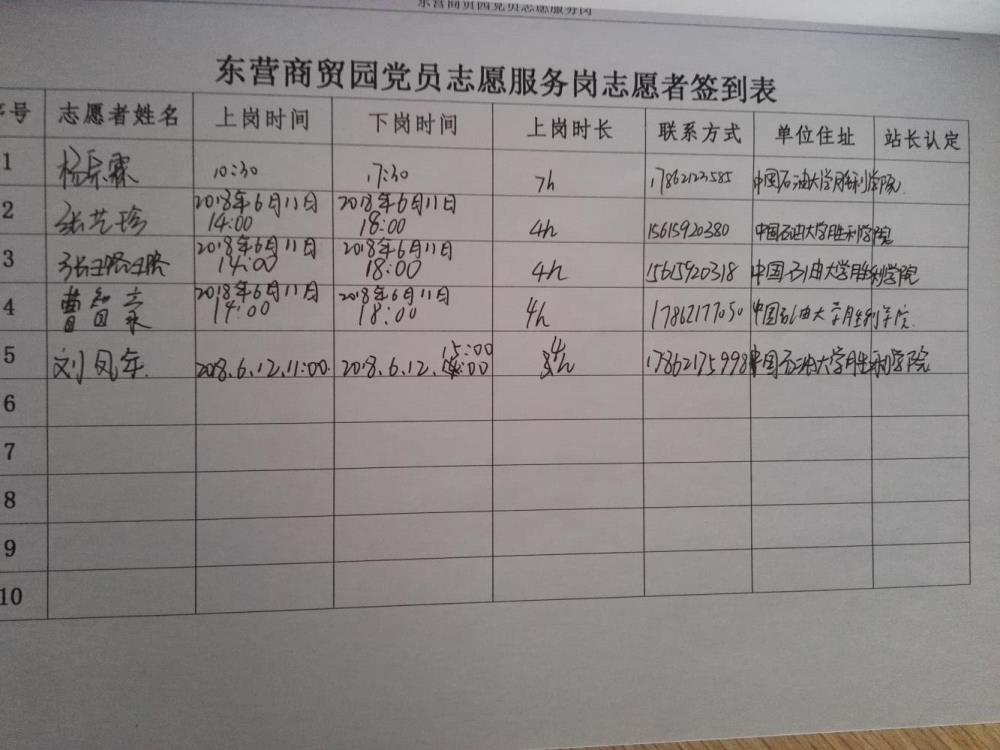 东营商贸园党员志愿服务岗
东营商贸园党员志愿服务岗志愿者签到表
序号 志愿者姓名 上岗时间 下岗时间 上岗时长 联系方式 单位住址 站长认定
1 10:30 17:30 7h 17862123585 中国石油大学胜利学院
2 张艺珍 2018年6月11日 14:00 2018年6月11日 18:00 4h 15615920380 中国石油大学胜利学院
3 张璐璐 2018年6月11日 14:00 2018年6月11日 18:00 4h 15615920318 中国石油大学胜利学院
4 曹智 2018年6月11日 14:00 2018年6月11日 18:00 4h 17862177050 中国石油大学胜利学院
5 刘凤年 2018.6.12.11:00 2018.6.12.15:00 4h 17862175998 中国石油大学胜利学院
6
7
8
9
10